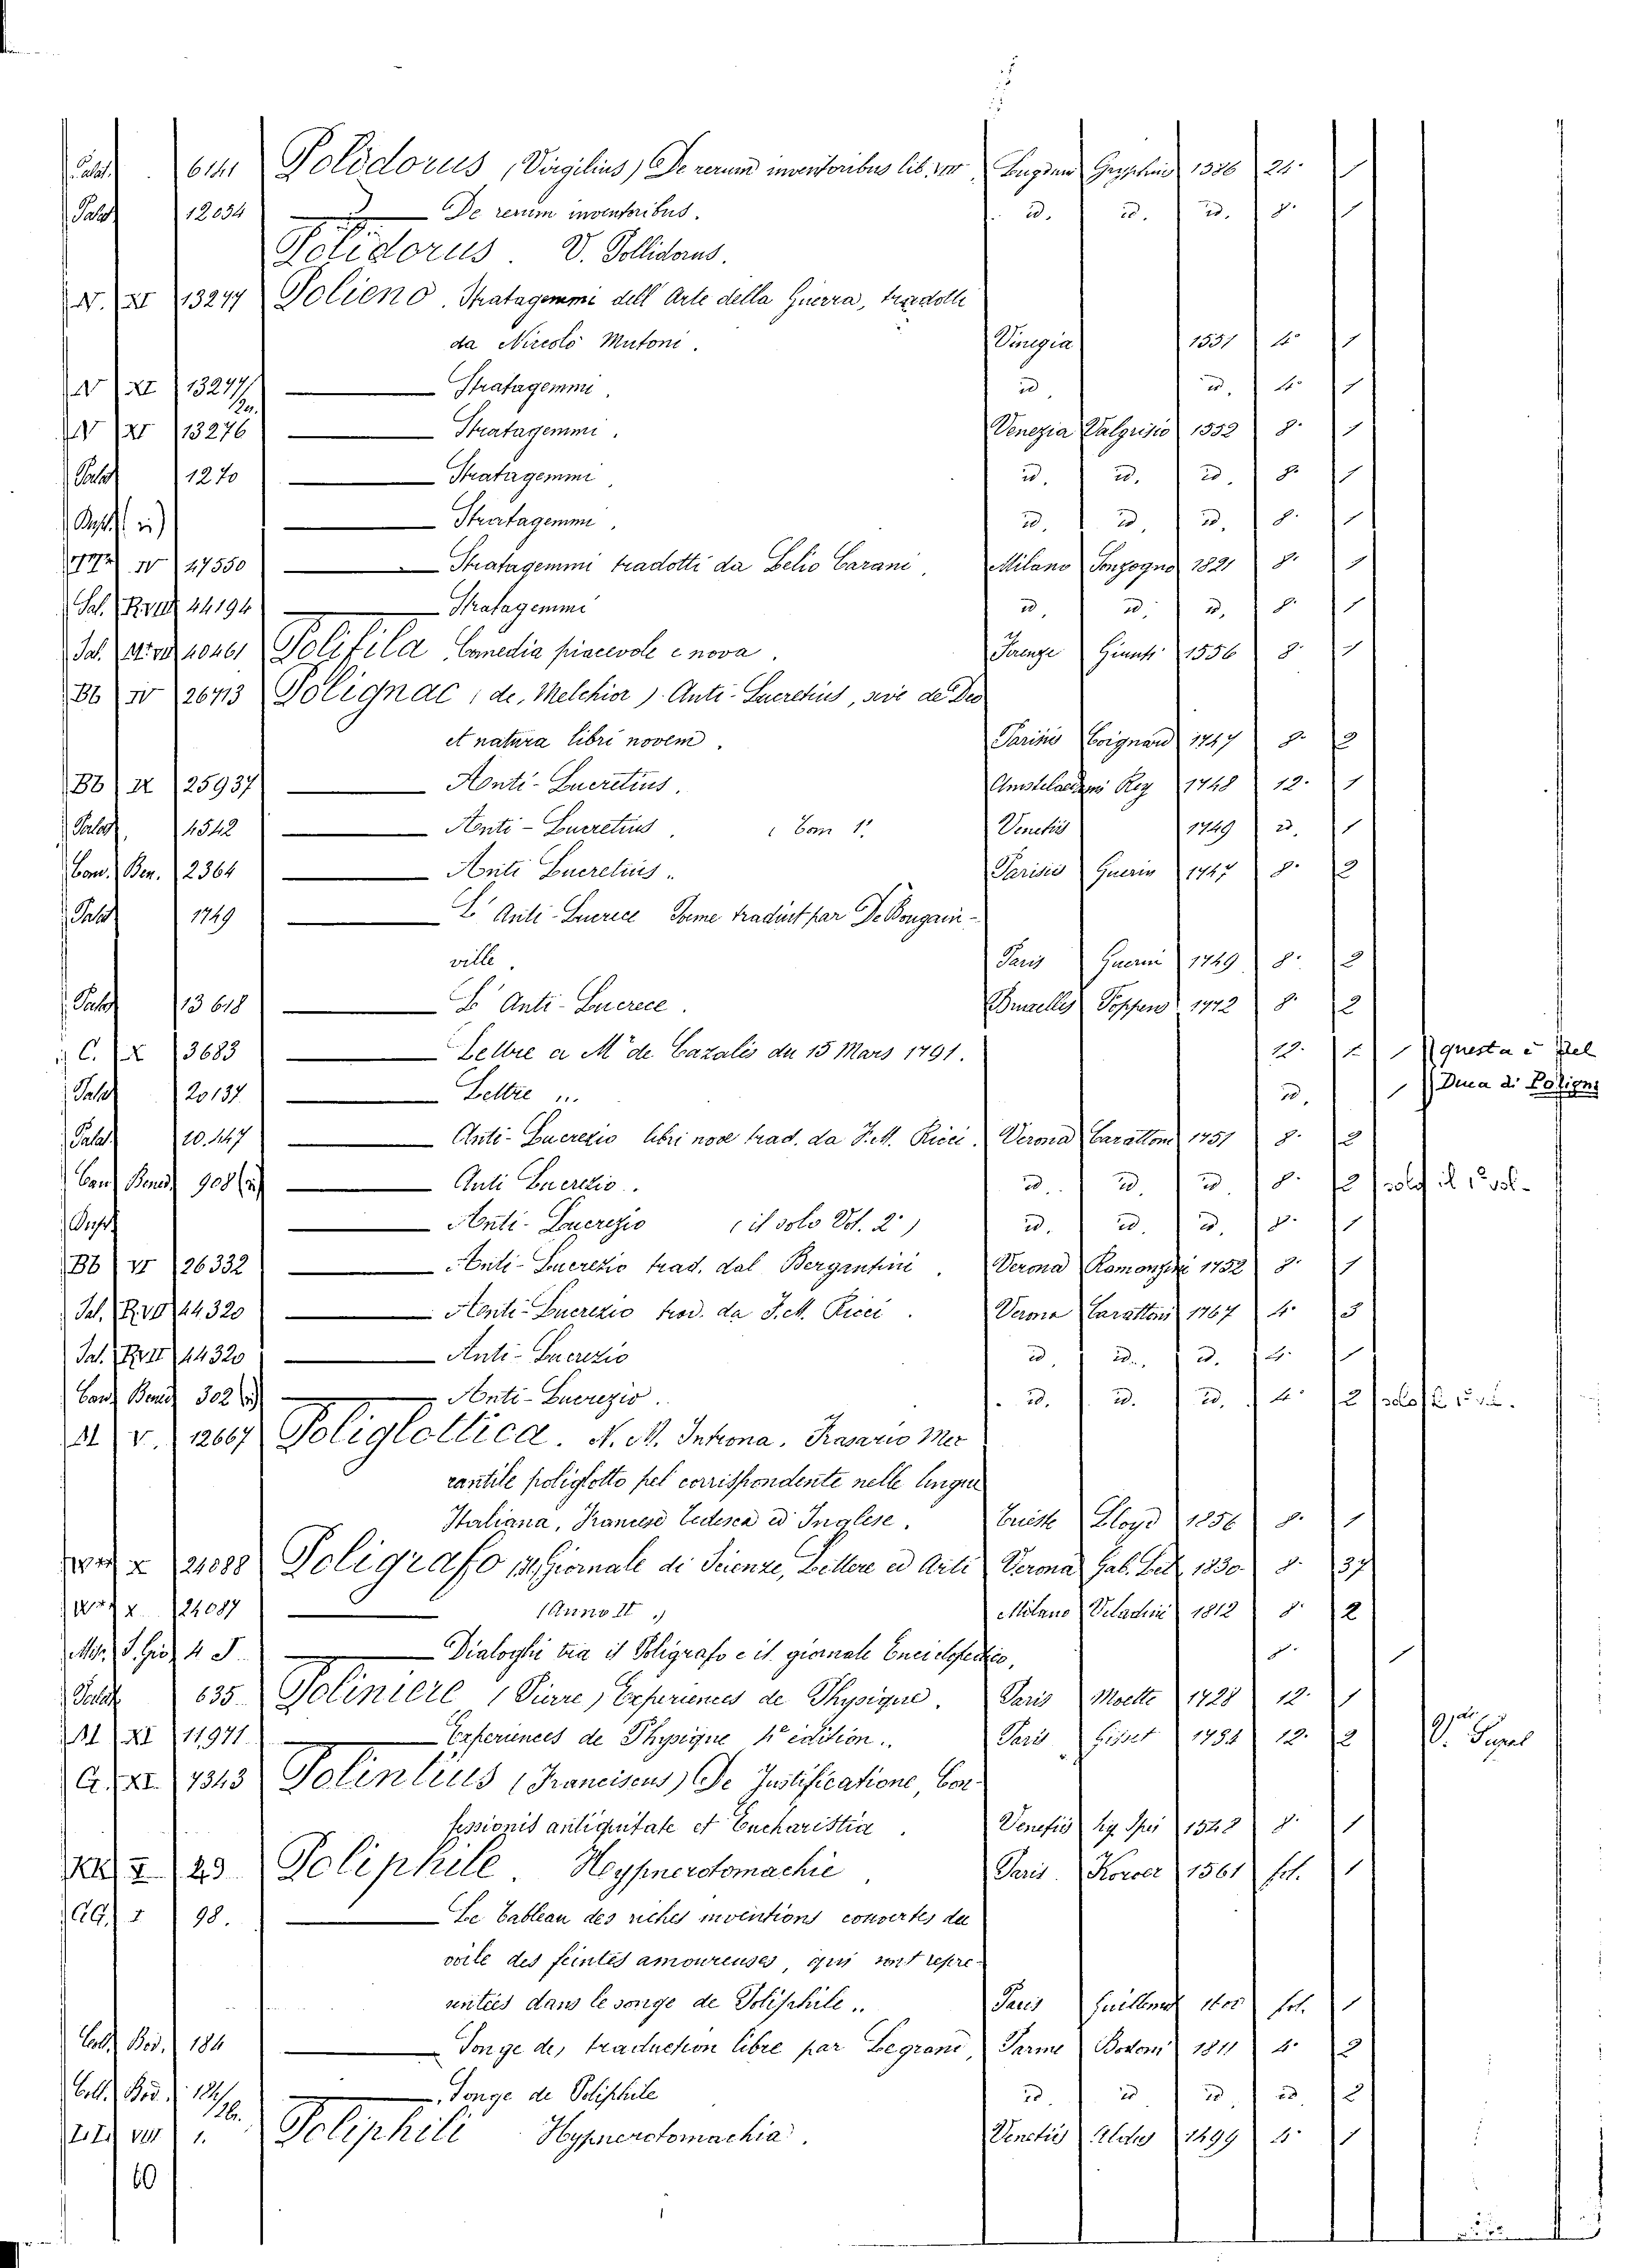 Palat. 6141 Polidorus (Virgilius) De rerum inventoribus lib. VIII Lugduni Gryphius 1586 24° 1
Palat. 12034 De rerum inventoribus. id. id. id. 8° 1
Polidorus. V. Pollidorus.
N. XI 13277 Polieno. Stratagemmi dell'Arte della Guerra, tradotti
da Nicolò Mutoni. Vinegia 1551 4° 1
N XI 13277/bis. Stratagemmi. id id. 4° 1
N XI 13276 Stratagemmi. Venezia Valgrisio 1552 8° 1
Palat 1270 Stratagemmi id. id. id. 8° 1
Stratagemmi. id. id. id. 8° 1
IV 47550 Stratagemmi tradotti da Lelio Carani. Milano Sonzogno 1821 8° 1
Sal. 44194 Stratagemmi id. id. id. 8° 1
Sal. Polifila. Comedia piacevole e nova. Firenze Giunti 1556 8° 1
Bb IV 26713 Polignac (de, Melchior) Anti-Lucretius, sive de Deo
et natura libri novem. Parisiis Coignard 1747 8° 2
Bb 25937 Anti-Lucretius. Amstelaedami Rey 1748 12° 1
Palat. 4542 Anti-Lucretius. (Tom 1° Venetiis 1749 id. 1
Com. Ben. 2364 Anti Lucretius. Parisiis Guerin 1747 8° 2
Palat 1749 L'Anti-Lucrece Poeme traduit par De Bougain-
ville. Paris Guerin 1749 8° 2
Palat 13618 L'Anti-Lucrece. Bruxelles Foppens 1772 8° 2
C. X 3683 Lettre a M. de Cazalès du 15 Mars 1791. 12° 1 questa è del
Palat 20137 Lettre ... id. 1 Duca di Polignac
Palat. 10.447 Anti-Lucrezio libri nove trad. da F. M. Ricci. Verona Carattoni 1751 8° 2
Com. Bened. 908 Anti Lucrezio.. id. id. id. 8° 2 solo il 1° vol.
Anti-Lucrezio (il solo Vol. 2°) id. id. id. 8° 1
Bb VI 26332 Anti-Lucrezio trad. dal Bergantini. Verona Ramanzini 1752 8° 1
Sal. 44320 Anti-Lucrezio trad. da F. M. Ricci. Verona Carattoni 1767 4° 3
Sal. 44320 Anti-Lucrezio id. id. id. 4° 1
Com. Bened. 302 Anti-Lucrezio. id. id. id. 4° 2
V. 12667 Poliglottica. Frasario Mer
cantile poliglotto pel corrispondente nelle lingue
Italiana, Francese Tedesca ed Inglese. Trieste Lloyd 1856 8° 1
X 24088 Poligrafo Giornale di Scienze, Lettere ed Arti Verona 1830 8° 37
X 24087 (Anno II.) Milano Veladini 1812 8° 2
4 J Dialoghi tra il Poligrafo e il giornale Enciclopedico, 8° 1
Palat 635 Poliniere (Pierre) Experiences de Physique. Paris Moette 1728 12° 1
XI 11971 Experiences de Physique 4e edition. Paris 1734 12° 2
XI. 7343 Polintius (Franciscus) De Justificatione, Con
fessionis antiquitate et Eucharistia. Venetiis Spei 1548 8° 1
43 Poliphile. Heypnerotomachie. Paris. Kerver 1561 fol. 1
I 98. Le tableau des riches inventions couvertes du
voile des feintes amoureuses, qui sont repre-
sentées dans le songe de Poliphile.. Paris Guillemot 1600 fol. 1
Coll. Bod. 184 Songe de, traduction libre par Legrand, Parme Bodoni 1811 4° 2
Coll. Bod. 184/bis. Songe de Poliphile id. id id id 2
VIII 1. Poliphili Hypnerotomachia. Venetiis Aldus 1499 4° 1
60